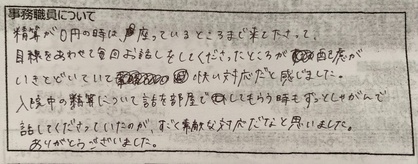 事務職員について
精算が0円の時は、座っているところまで来て下さって、
目線をあわせて毎回お話しをしてくださったところが配慮が
いきとどいていて快い対応だと感じました。
入院中の精算について話を部屋でしてもらう時もずっとしゃがんで
話してくださっていたのが、すごく素敵な対応だなと思いました。
ありがとうございました。